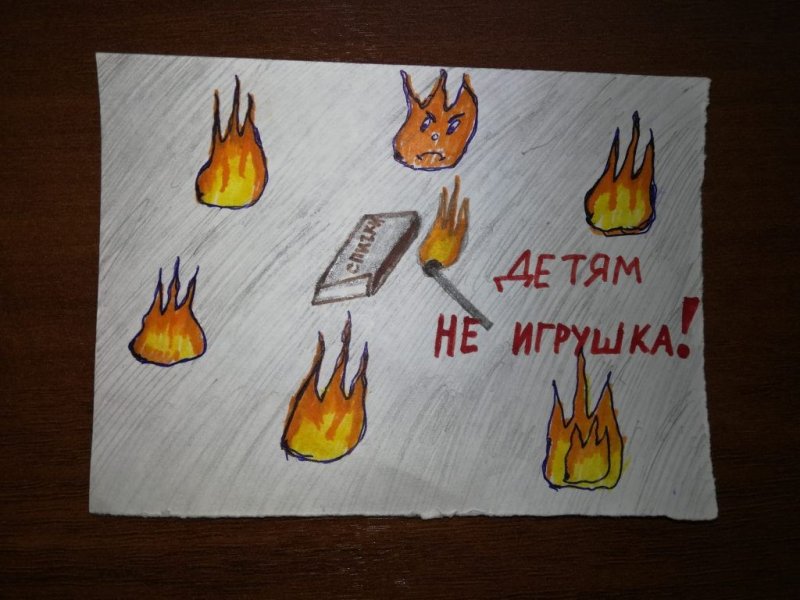 СПИЧКИ
ДЕТЯМ
НЕ ИГРУШКА!